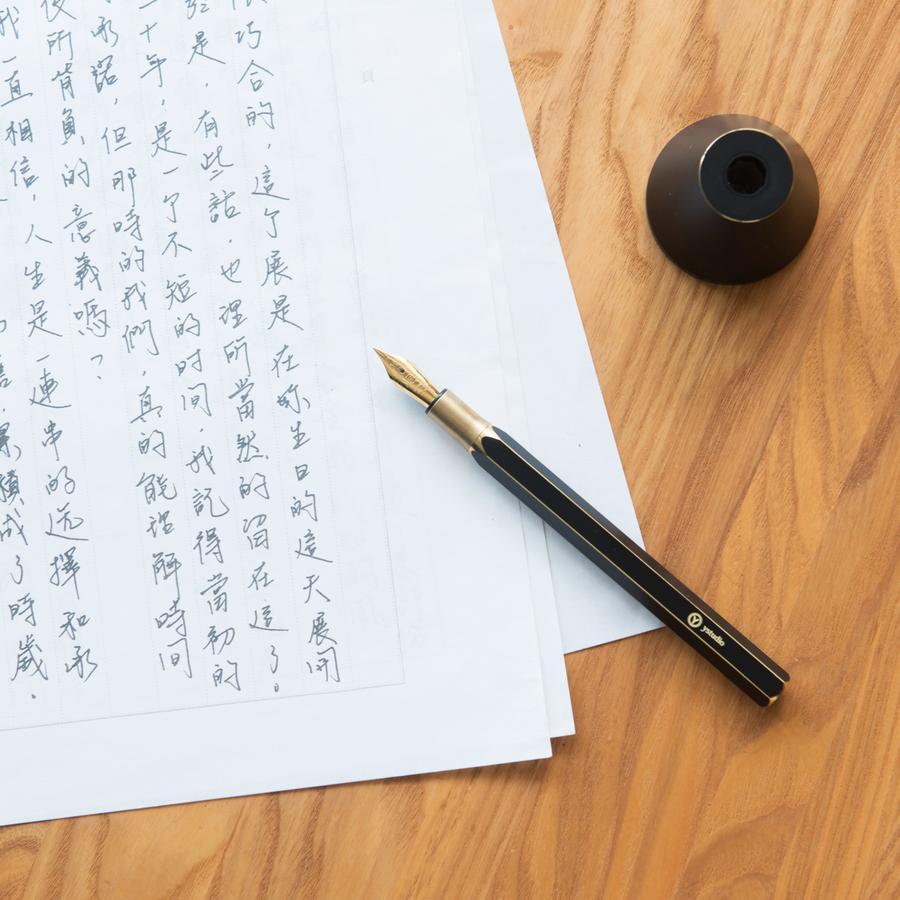 很巧合的，這個展是在你生日的這天展開
是，有些話，也理所當然的留在這了。
二十年，是一個不短的时间，我記得當初的
承諾，但那時的我們，真的能理解時间
後所背負的意義嗎？
我一直相信，人生是一連串的选擇和承
累積成了時歲．
ystudio